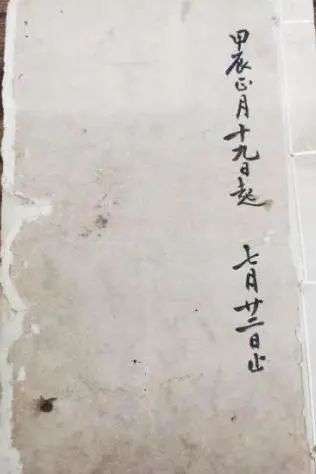 甲辰正月十九日起 七月廿二日止